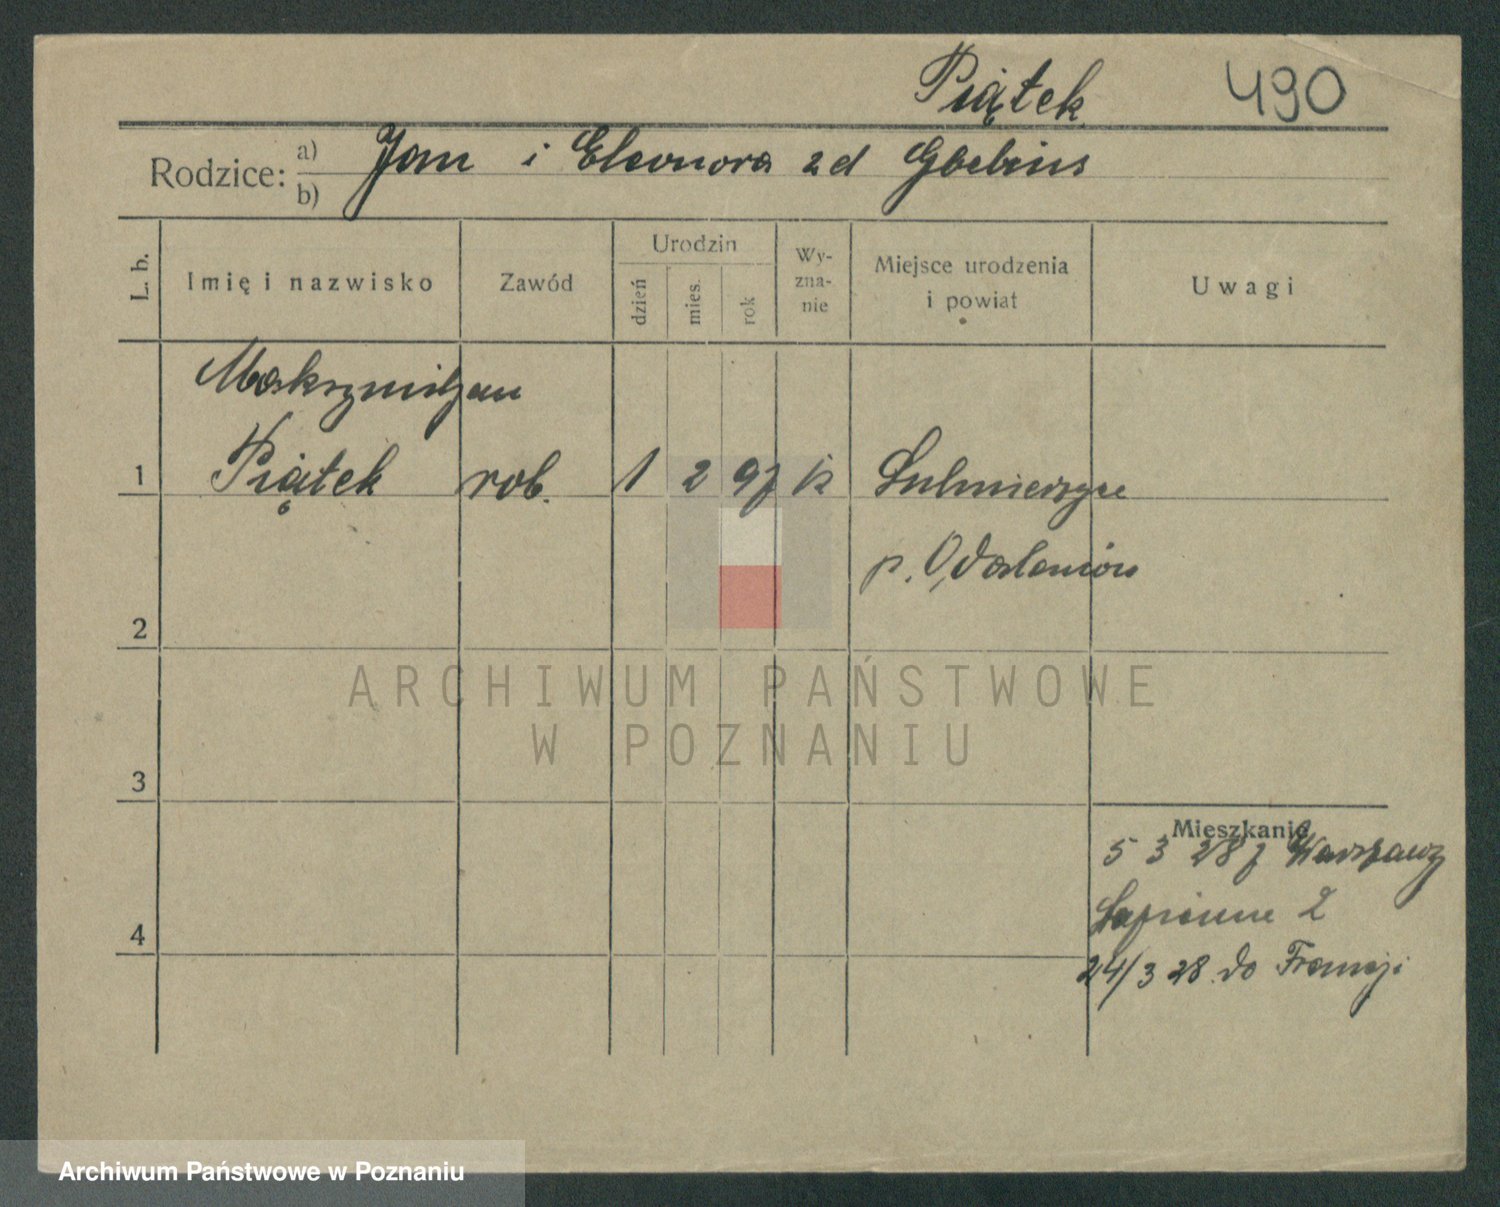 Piątek 490
Rodzice: a) Jan i Eleonora zd
b)
L. b. Imię i nazwisko Zawód Urodzin dzień mies. rok Wy-zna-nie Miejsce urodzenia i powiat Uwagi
Maksymiljan
1 Piątek rob. 1 2 97 k Sulmierzyce
p. Odolanów
2
ARCHIWUM PAŃSTWOWE
W POZNANIU
3
Mieszkanie
5 3 28 z Warszawy
4
24/3 28 do Francji
Archiwum Państwowe w Poznaniu